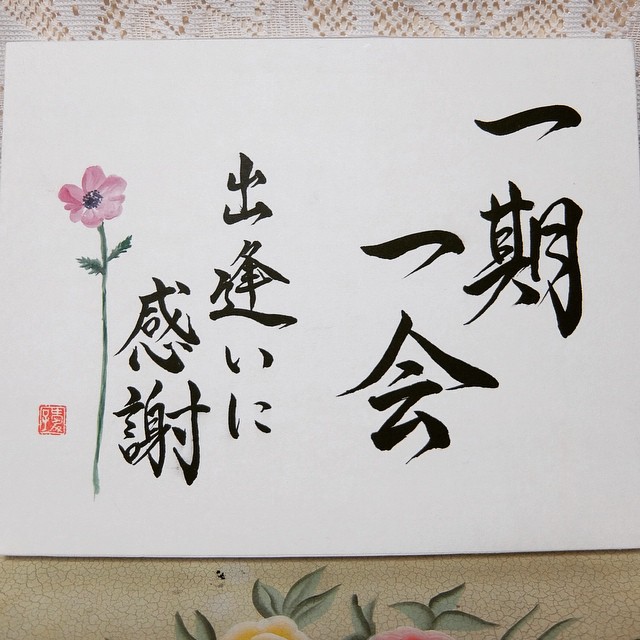 一期
一会
出逢いに
感謝